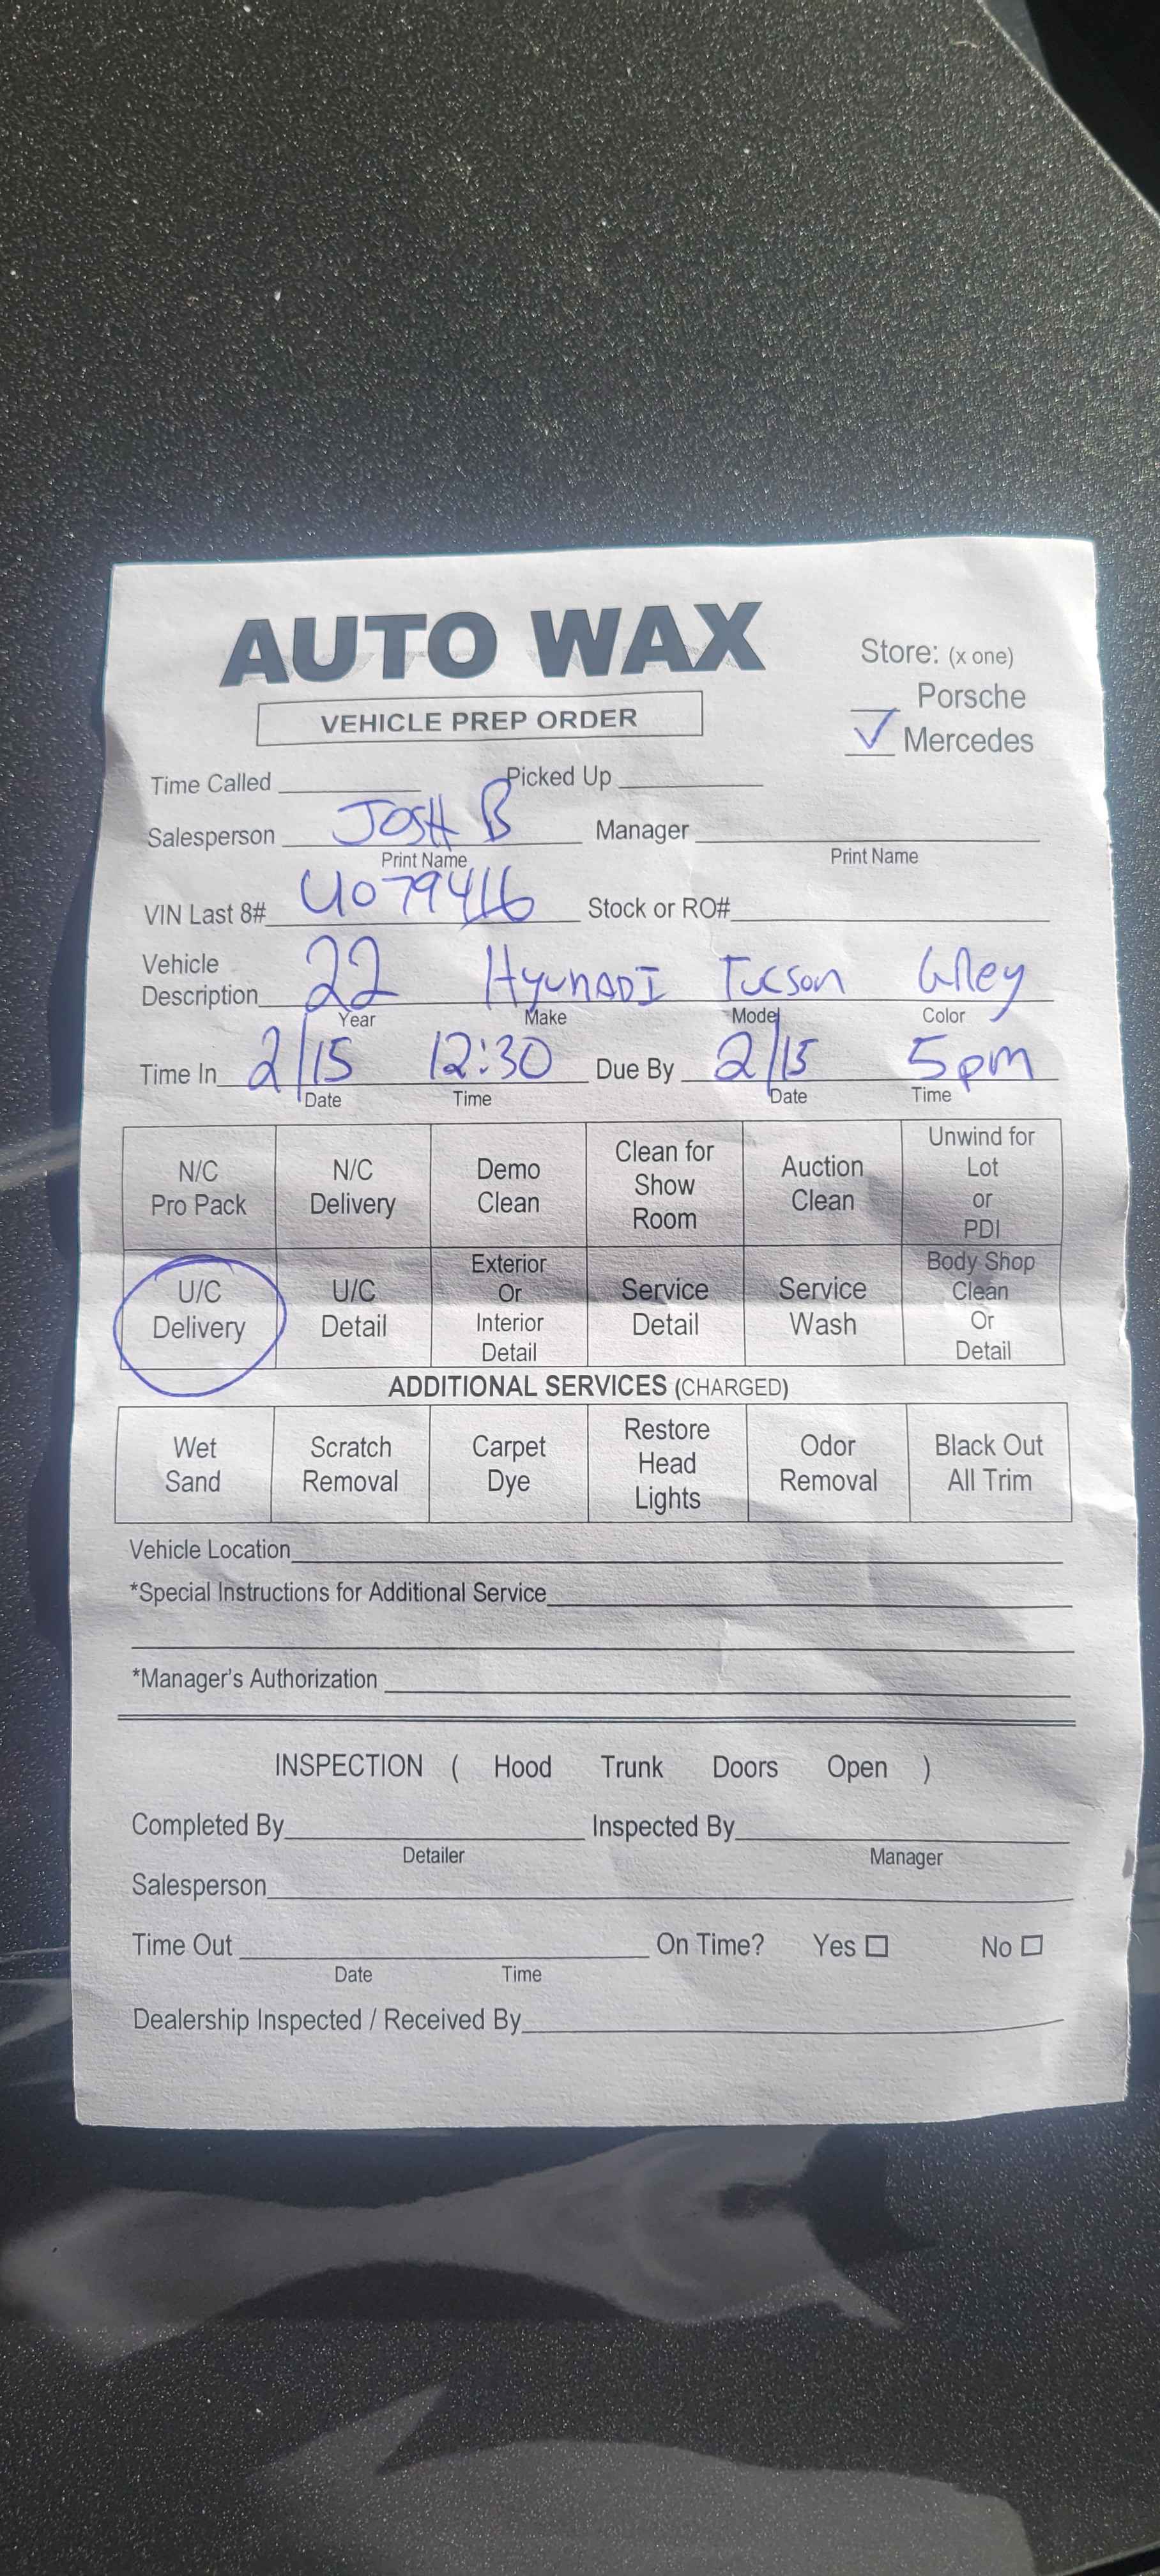 AUTO WAX
Store: (x one)
Porsche
VEHICLE PREP ORDER
✓ Mercedes
Time Called Picked Up
Salesperson JOSH B Manager
Print Name Print Name
VIN Last 8# U079416 Stock or RO#
Vehicle Description 22 HyunADI Tucson Grey
Year Make Model Color
Time In 2/15 12:30 Due By 2/15 5pm
Date Time Date Time
N/C Pro Pack N/C Delivery Demo Clean Clean for Show Room Auction Clean Unwind for Lot or PDI
U/C Delivery U/C Detail Exterior Or Interior Detail Service Detail Service Wash Body Shop Clean Or Detail
ADDITIONAL SERVICES (CHARGED)
Wet Sand Scratch Removal Carpet Dye Restore Head Lights Odor Removal Black Out All Trim
Vehicle Location
*Special Instructions for Additional Service
*Manager's Authorization
INSPECTION ( Hood Trunk Doors Open )
Completed By Inspected By
Detailer Manager
Salesperson
Time Out On Time? Yes ☐ No ☐
Date Time
Dealership Inspected / Received By